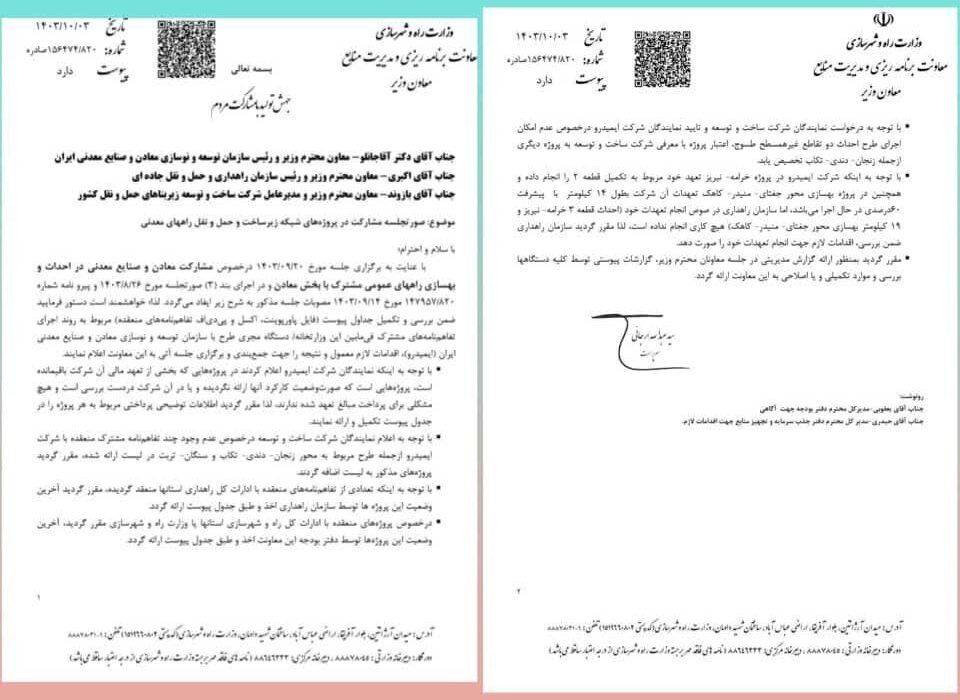 وزارت راه و شهرسازی
معاونت برنامه ریزی و مدیریت منابع
معاون وزیر
تاریخ ۱۴۰۳/۱۰/۰۳
شماره: ۱۵۶۴۷۴/۸۲۰صادره
پیوست دارد
بسمه تعالی
جهش تولید با مشارکت مردم
جناب آقای دکتر آقاجانلو– معاون محترم وزیر و رئیس سازمان توسعه و نوسازی معادن و صنایع معدنی ایران
جناب آقای اکبری– معاون محترم وزیر و رئیس سازمان راهداری و حمل و نقل جاده ای
جناب آقای بازوند– معاون محترم وزیر و مدیرعامل شرکت ساخت و توسعه زیربناهای حمل و نقل کشور
موضوع: صورتجلسه مشارکت در پروژه‌های شبکه زیرساخت و حمل و نقل راههای معدنی
با سلام و احترام؛
با عنایت به برگزاری جلسه مورخ ۱۴۰۳/۰۹/۲۰ درخصوص مشارکت معادن و صنایع معدنی در احداث و
بهسازی راههای عمومی مشترک با بخش معادن و در اجرای بند (۳) صورتجلسه مورخ ۱۴۰۳/۸/۲۶ و پیرو نامه شماره
۱۴۷۹۵۷/۸۲۰ مورخ ۱۴۰۳/۰۹/۱۴ مصوبات جلسه مذکور به شرح زیر ایفاد می‌گردد. لذا؛ خواهشمند است دستور فرمایید
ضمن بررسی و تکمیل جداول پیوست (فایل پاورپوینت، اکسل و پی‌دی‌اف تفاهم‌نامه‌های منعقده) مربوط به روند اجرای
تفاهم‌نامه‌های مشترک فی‌مابین این وزارتخانه/ دستگاه مجری طرح با سازمان توسعه و نوسازی معادن و صنایع معدنی
ایران (ایمیدرو)، اقدامات لازم معمول و نتیجه را جهت جمع‌بندی و برگزاری جلسه آتی به این معاونت اعلام نمایند.
▪ با توجه به اینکه نمایندگان شرکت ایمیدرو اعلام کردند در پروژه‌هایی که بخشی از تعهد مالی آن شرکت باقیمانده
است، پروژه‌هایی است که صورت‌وضعیت کارکرد آنها ارائه نگردیده و یا در آن شرکت دردست بررسی است و هیچ
مشکلی برای پرداخت مبالغ تعهد شده ندارند، لذا مقرر گردید اطلاعات توضیحی پرداختی مربوط به هر پروژه را در
جدول پیوست تکمیل و ارائه نمایند.
▪ با توجه به اعلام نمایندگان شرکت ساخت و توسعه درخصوص عدم وجود چند تفاهم‌نامه مشترک منعقده با شرکت
ایمیدرو ازجمله طرح مربوط به محور زنجان- دندی- تکاب و سنگان- تربت در لیست ارائه شده، مقرر گردید
پروژه‌های مذکور به لیست اضافه گردند.
▪ با توجه به اینکه تعدادی از تفاهم‌نامه‌های منعقده با ادارات کل راهداری استانها منعقد گردیده، مقرر گردید آخرین
وضعیت این پروژه ها توسط سازمان راهداری اخذ و طبق جدول پیوست ارائه گردد.
▪ درخصوص پروژه‌های منعقده با ادارات کل راه و شهرسازی استانها یا وزارت راه و شهرسازی مقرر گردید، آخرین
وضعیت این پروژه‌ها توسط دفتر بودجه این معاونت اخذ و طبق جدول پیوست ارائه گردد.
۱
آدرس: میدان آرژانتین، بلوار آفریقا، اراضی عباس آباد، ساختمان شهید دادمان، وزارت راه و شهرسازی (کدپستی ۱۵۱۹۶۶۰۸۰۲) تلفن: ۸۸۸۷۸۰۳۱-۹
دورنگار: دبیرخانه وزارتی: ۸۸۸۷۸۰۴۵ ، دبیرخانه مرکزی: ۸۸۶۴۶۳۴۳ (نامه های فاقد مهر برجسته وزارت راه و شهرسازی از درجه اعتبار ساقط می‌باشد)
وزارت راه و شهرسازی
معاونت برنامه ریزی و مدیریت منابع
معاون وزیر
تاریخ ۱۴۰۳/۱۰/۰۳
شماره: ۱۵۶۴۷۴/۸۲۰صادره
پیوست دارد
▪ با توجه به درخواست نمایندگان شرکت ساخت و توسعه و تایید نمایندگان شرکت آیمیدرو درخصوص عدم امکان
اجرای طرح احداث دو تقاطع غیرهمسطح طسوج، اعتبار پروژه با معرفی شرکت ساخت و توسعه به پروژه دیگری
ازجمله زنجان- دندی- تکاب تخصیص یابد.
▪ با توجه به اینکه شرکت ایمیدرو در پروژه خرامه- نیریز تعهد خود مربوط به تکمیل قطعه ۲ را انجام داده و
همچنین در پروژه بهسازی محور جغتای- منیدر- کاهک تعهدات آن شرکت بطول ۱۴ کیلومتر با پیشرفت
۶۰درصدی در حال اجرا می‌باشد، اما سازمان راهداری در صوص انجام تعهدات خود (احداث قطعه ۳ خرامه- نیریز و
۱۹ کیلومتر بهسازی محور جغتای- منیدر- کاهک) هیچ کاری انجام نداده است، لذا مقرر گردید سازمان راهداری
ضمن بررسی، اقدامات لازم جهت انجام تعهدات خود را صورت دهد.
▪ مقرر گردید بمنظور ارائه گزارش مدیریتی در جلسه معاونان محترم وزیر، گزارشات پیوستی توسط کلیه دستگاهها
بررسی و موارد تکمیلی و یا اصلاحی به این معاونت ارائه گردد.
سرپرست
رونوشت:
جناب آقای یعقوبی-مدیرکل محترم دفتر بودجه جهت آگاهی
جناب آقای حیدری-مدیر کل محترم دفتر جذب سرمایه و تجهیز منابع جهت اقدامات لازم.
۲
آدرس: میدان آرژانتین، بلوار آفریقا، اراضی عباس آباد، ساختمان شهید دادمان، وزارت راه و شهرسازی (کدپستی ۱۵۱۹۶۶۰۸۰۲) تلفن: ۸۸۸۷۸۰۳۱-۹
دورنگار: دبیرخانه وزارتی: ۸۸۸۷۸۰۴۵ ، دبیرخانه مرکزی: ۸۸۶۴۶۳۴۳ (نامه های فاقد مهر برجسته وزارت راه و شهرسازی از درجه اعتبار ساقط می‌باشد)